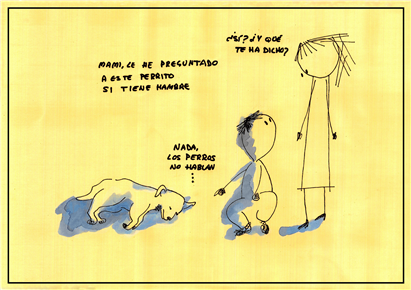 MAMI, LE HE PREGUNTADO
A ESTE PERRITO
SI TIENE HAMBRE
¿SÍ? ¿Y QUÉ
TE HA DICHO?
NADA,
LOS PERROS
NO HABLAN
...